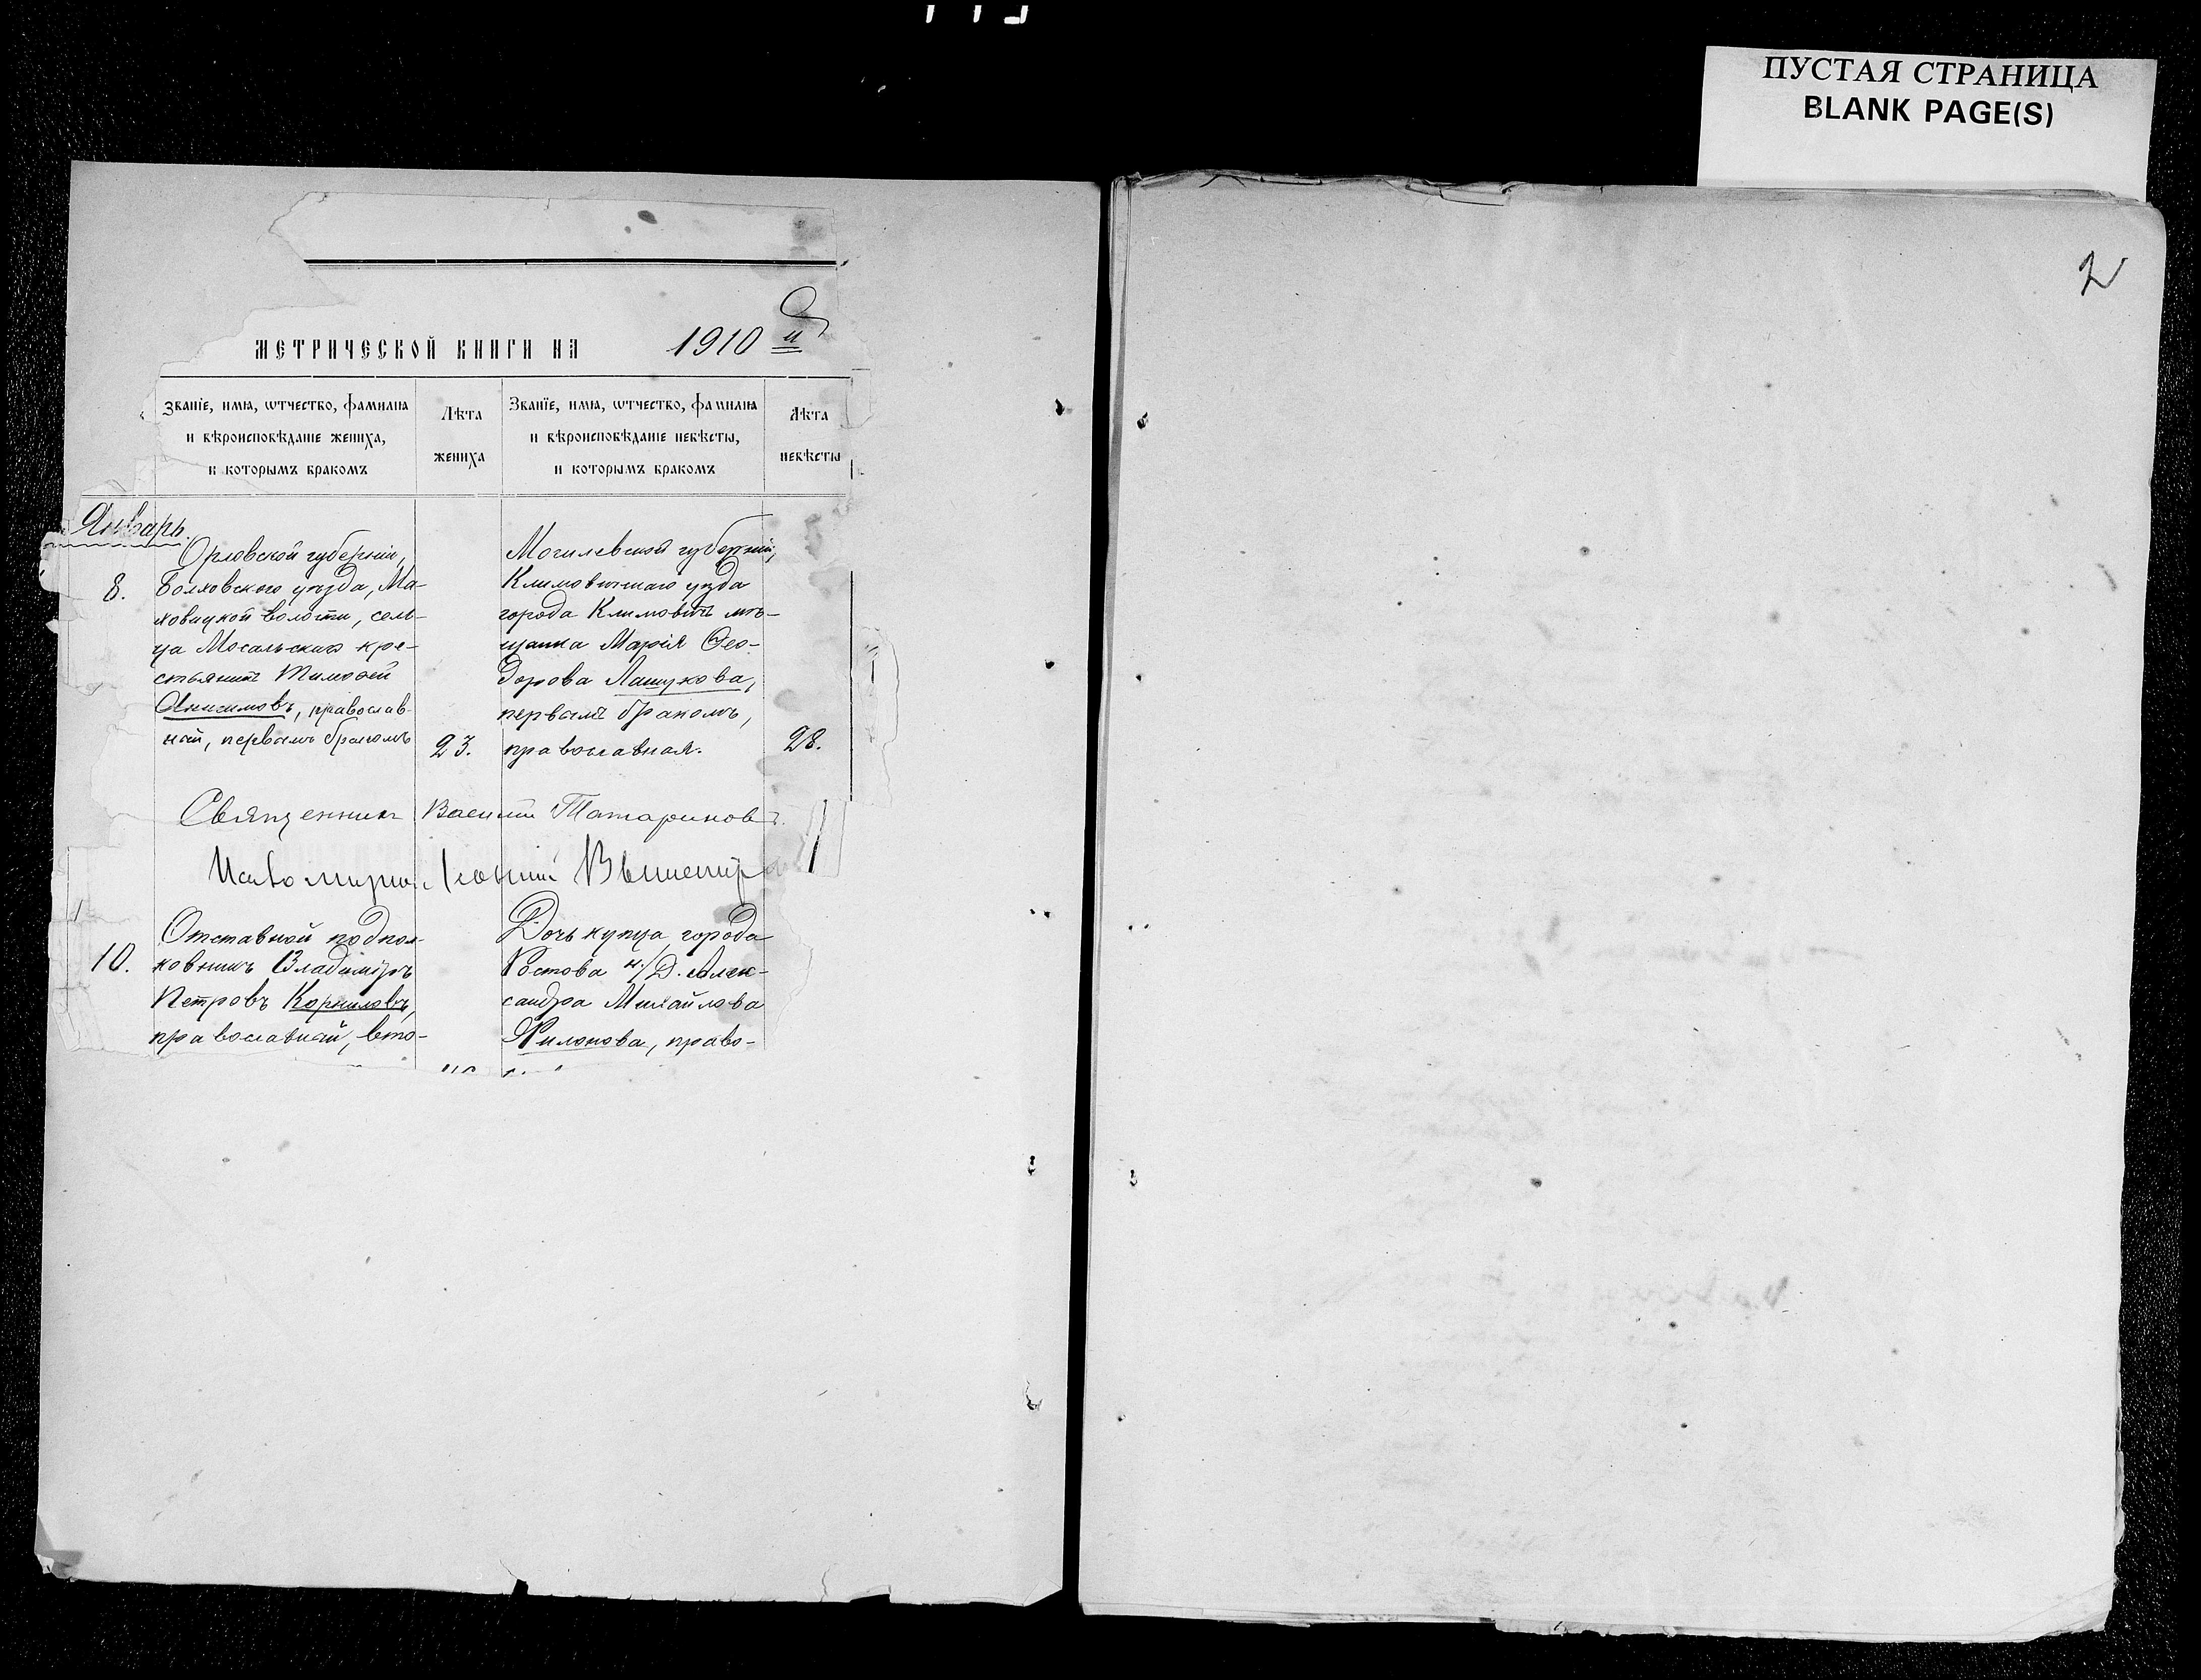 ПУСТАЯ СТРАНИЦА
BLANK PAGE(S)
2
МЕТРИЧЕСКОЙ КНИГИ НА 1910 й
Званїе, имя, ѡтчество, фамилїа
и вѣроисповѣданїе жениха,
и которымъ бракомъ
Лѣта
жениха
Званїе, имя, ѡтчество, фамилїа
и вѣроисповѣданїе невѣсты,
и которымъ бракомъ
Лѣта
невѣсты
Январь.
8.
Орловской губерніи,
Болховского уѣзда, Ма-
ховицкой волости, сель-
ца Мосальскихъ кре-
стьянинъ Тимофей
Анисимовъ, православ-
ный, первымъ бракомъ
23.
Могилевской губерніи,
Климовичскаго уѣзда
города Климовичъ мѣ-
щанка Марія Ѳео-
дорова Лашукова,
первымъ бракомъ,
православная.
28.
Священникъ Василій Татариновъ.
10.
Отставной подпол-
ковникъ Владиміръ
Петровъ Корниловъ,
православный, вто-
Дочь купца города
Ростова н./Д. Алек-
сандра Михайлова
Филонова, право-